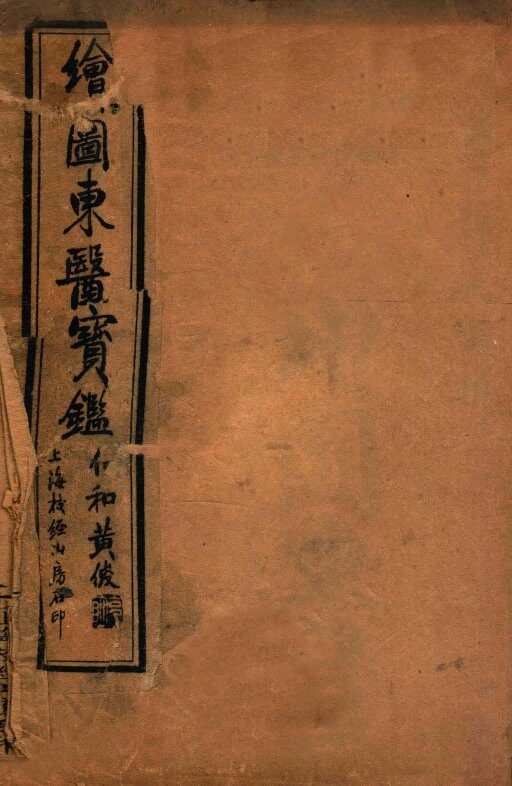 繪圖東醫寶鑑
仁和黃俊
上海校經山房石印